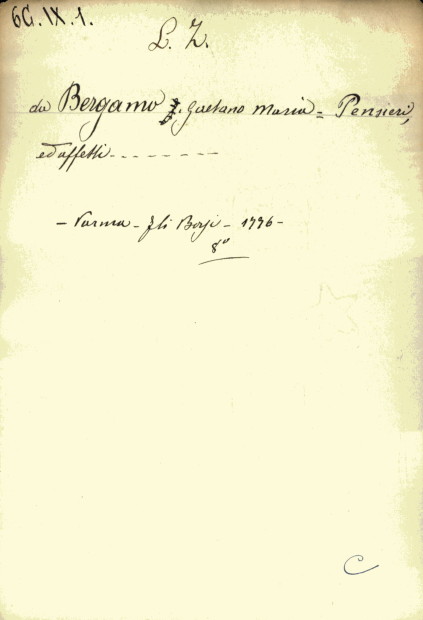 6G.IX.1.
L. Z.
da Bergamo F. Gaetano Maria = Pensieri,
ed affetti - - - - - - -
- Parma - Fli Borsi - 1776 -
8°
C